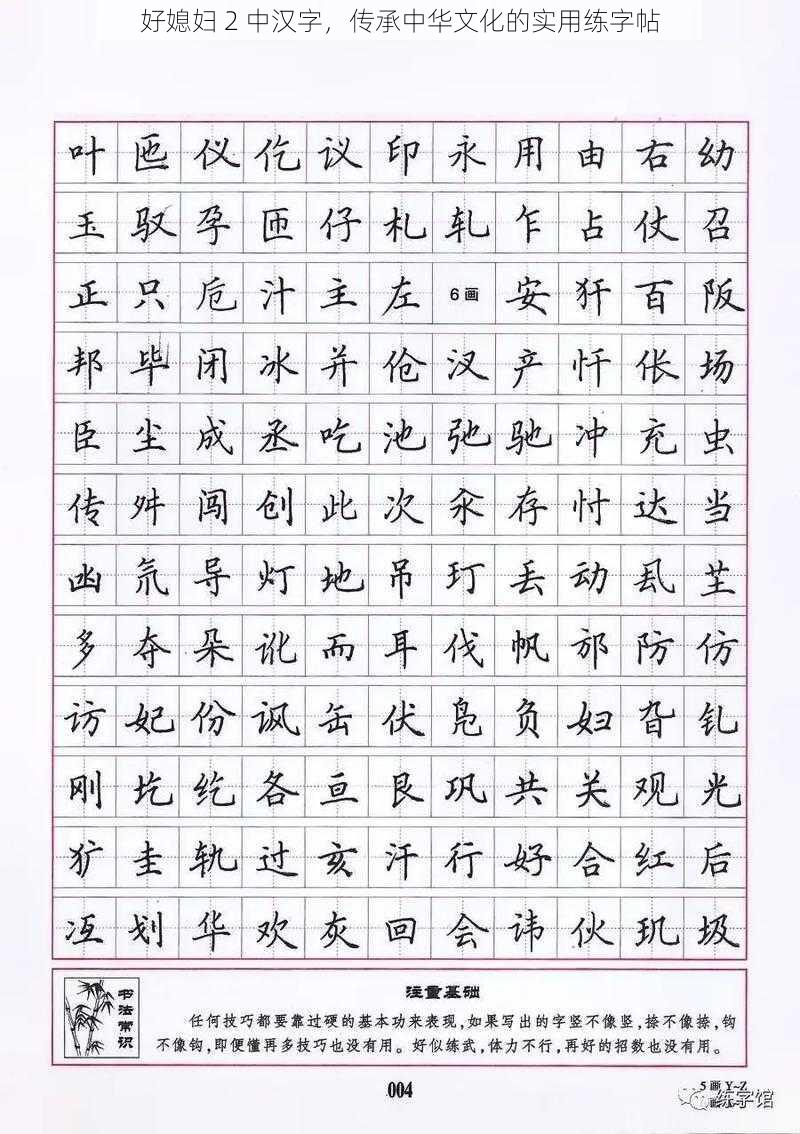 好媳妇2中汉字，传承中华文化的实用练字帖
叶 迤 仪 仡 议 印 永 用 由 右 幼
玉 驭 孕 匝 仔 札 轧 乍 占 仗 召
正 只 卮 汁 主 左 6画 安 犴 百 阪
邦 毕 闭 冰 并 伧 汉 产 忏 伥 场
臣 尘 成 丞 吃 池 弛 驰 冲 充 虫
传 舛 闯 创 此 次 汆 存 忖 达 当
凼 氘 导 灯 地 吊 玎 丢 动 厾 芏
多 夺 朵 讹 而 耳 伐 帆 邡 防 仿
访 妃 份 讽 缶 伏 凫 负 妇 旮 钆
刚 圪 纥 各 亘 艮 巩 共 关 观 光
犷 圭 轨 过 亥 汗 行 好 合 红 后
冱 划 华 欢 灰 回 会 讳 伙 玑 圾
书法常识
注重基础
任何技巧都要靠过硬的基本功来表现,如果写出的字竖不像竖,捺不像捺,钩
不像钩,即便懂再多技巧也没有用。好似练武,体力不行,再好的招数也没有用。
004
5画Y~Z
练字馆